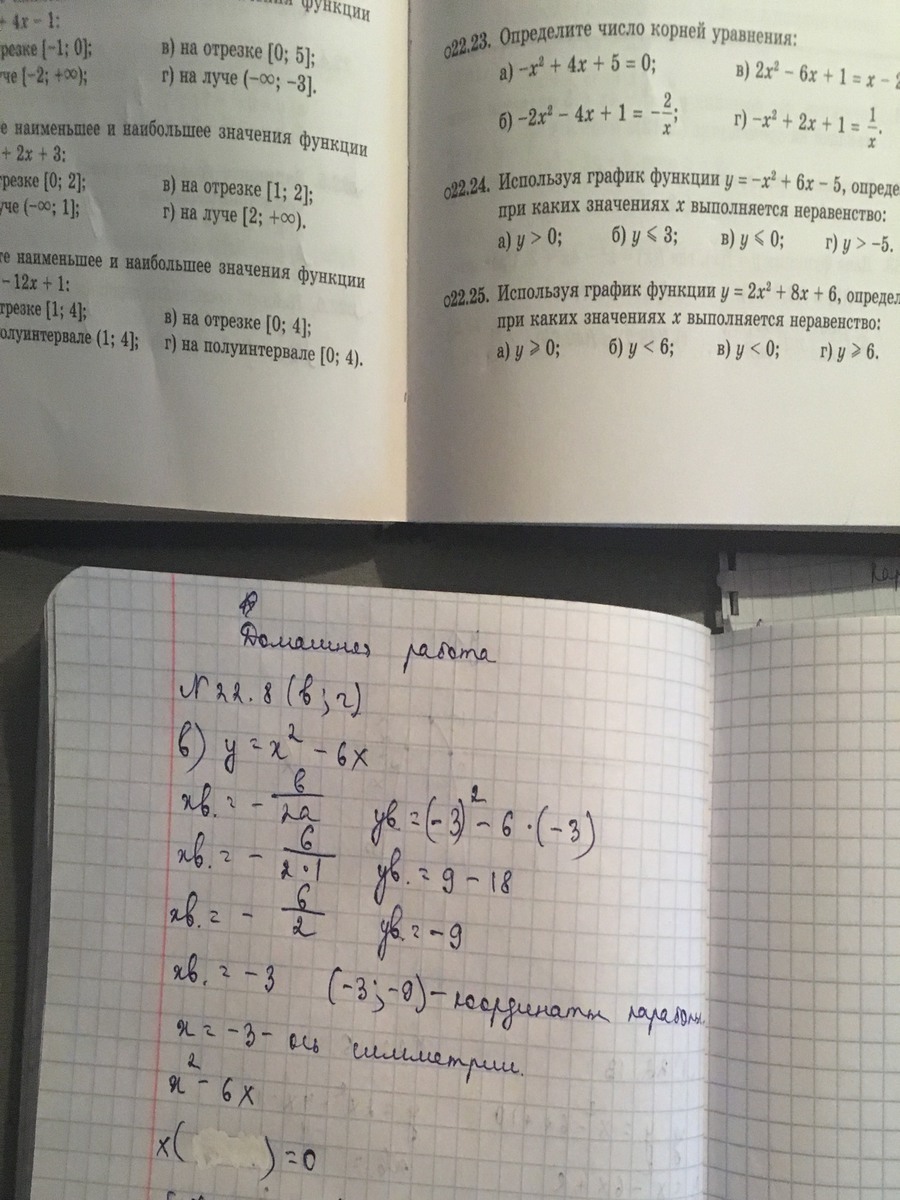 функции
+ 4x − 1:
резке [−1; 0];
в) на отрезке [0; 5];
че [−2; +∞);
г) на луче (−∞; −3].
е наименьшее и наибольшее значения функции
+ 2x + 3:
резке [0; 2];
в) на отрезке [1; 2];
че (−∞; 1];
г) на луче [2; +∞).
те наименьшее и наибольшее значения функции
− 12x + 1:
трезке [1; 4];
в) на отрезке [0; 4];
олуинтервале (1; 4];
г) на полуинтервале [0; 4).
o22.23. Определите число корней уравнения:
а) −x² + 4x + 5 = 0;
в) 2x² − 6x + 1 = x −
б) −2x² − 4x + 1 = −2/x;
г) −x² + 2x + 1 = 1/x.
o22.24. Используя график функции y = −x² + 6x − 5, опреде
при каких значениях x выполняется неравенство:
а) y > 0; б) y ⩽ 3; в) y ⩽ 0; г) y > −5.
o22.25. Используя график функции y = 2x² + 8x + 6, определ
при каких значениях x выполняется неравенство:
а) y ⩾ 0; б) y < 6; в) y < 0; г) y ⩾ 6.
Домашняя работа
N 22.8 (в; г)
в) y = x² − 6x
xв. = − в/2a
xв. = − 6/2·1
xв. = − 6/2
xв. = −3
yв. = (−3)² − 6 · (−3)
yв. = 9 − 18
yв. = −9
(−3; −9) − координаты параболы.
x = −3 − ось симметрии.
x² − 6x
x( ) = 0